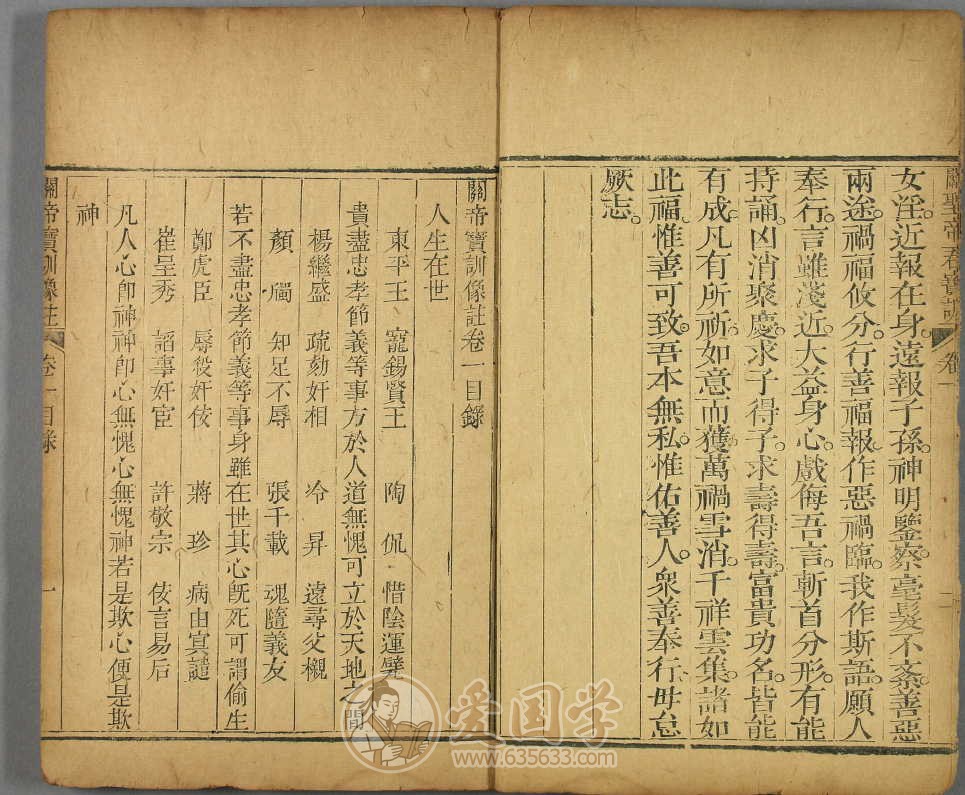 關聖帝君寶訓 卷一 二
女淫。近報在身。遠報子孫。神明鑒察。毫髮不紊。善惡
兩途。禍福攸分。行善福報。作惡禍臨。我作斯語。願人
奉行。言雖淺近。大益身心。戲侮吾言。斬首分形。有能
持誦。凶消聚慶。求子得子。求壽得壽。富貴功名。皆能
有成。凡有所祈。如意而獲。萬禍雪消。千祥雲集。諸如
此福。惟善可致。吾本無私。惟佑善人。衆善奉行。毋怠
厥志。
關帝寶訓像註卷一目錄
人生在世
東平王 寵錫賢王 陶侃 惜陰運甓
貴盡忠孝節義等事方於人道無愧可立於天地之間
楊繼盛 疏劾奸相 冷昇 遠尋父櫬
顏斶 知足不辱 張千載 魂隨義友
若不盡忠孝節義等事身雖在世其心旣死可謂偷生
鄭虎臣 辱殺奸佞 蔣珍 病由冥譴
崔呈秀 謟事奸宦 許敬宗 佞言易后
凡人心卽神神卽心無愧心無愧神若是欺心便是欺
神
關帝寶訓像註 卷一目錄 一
爱国学
www.635633.com